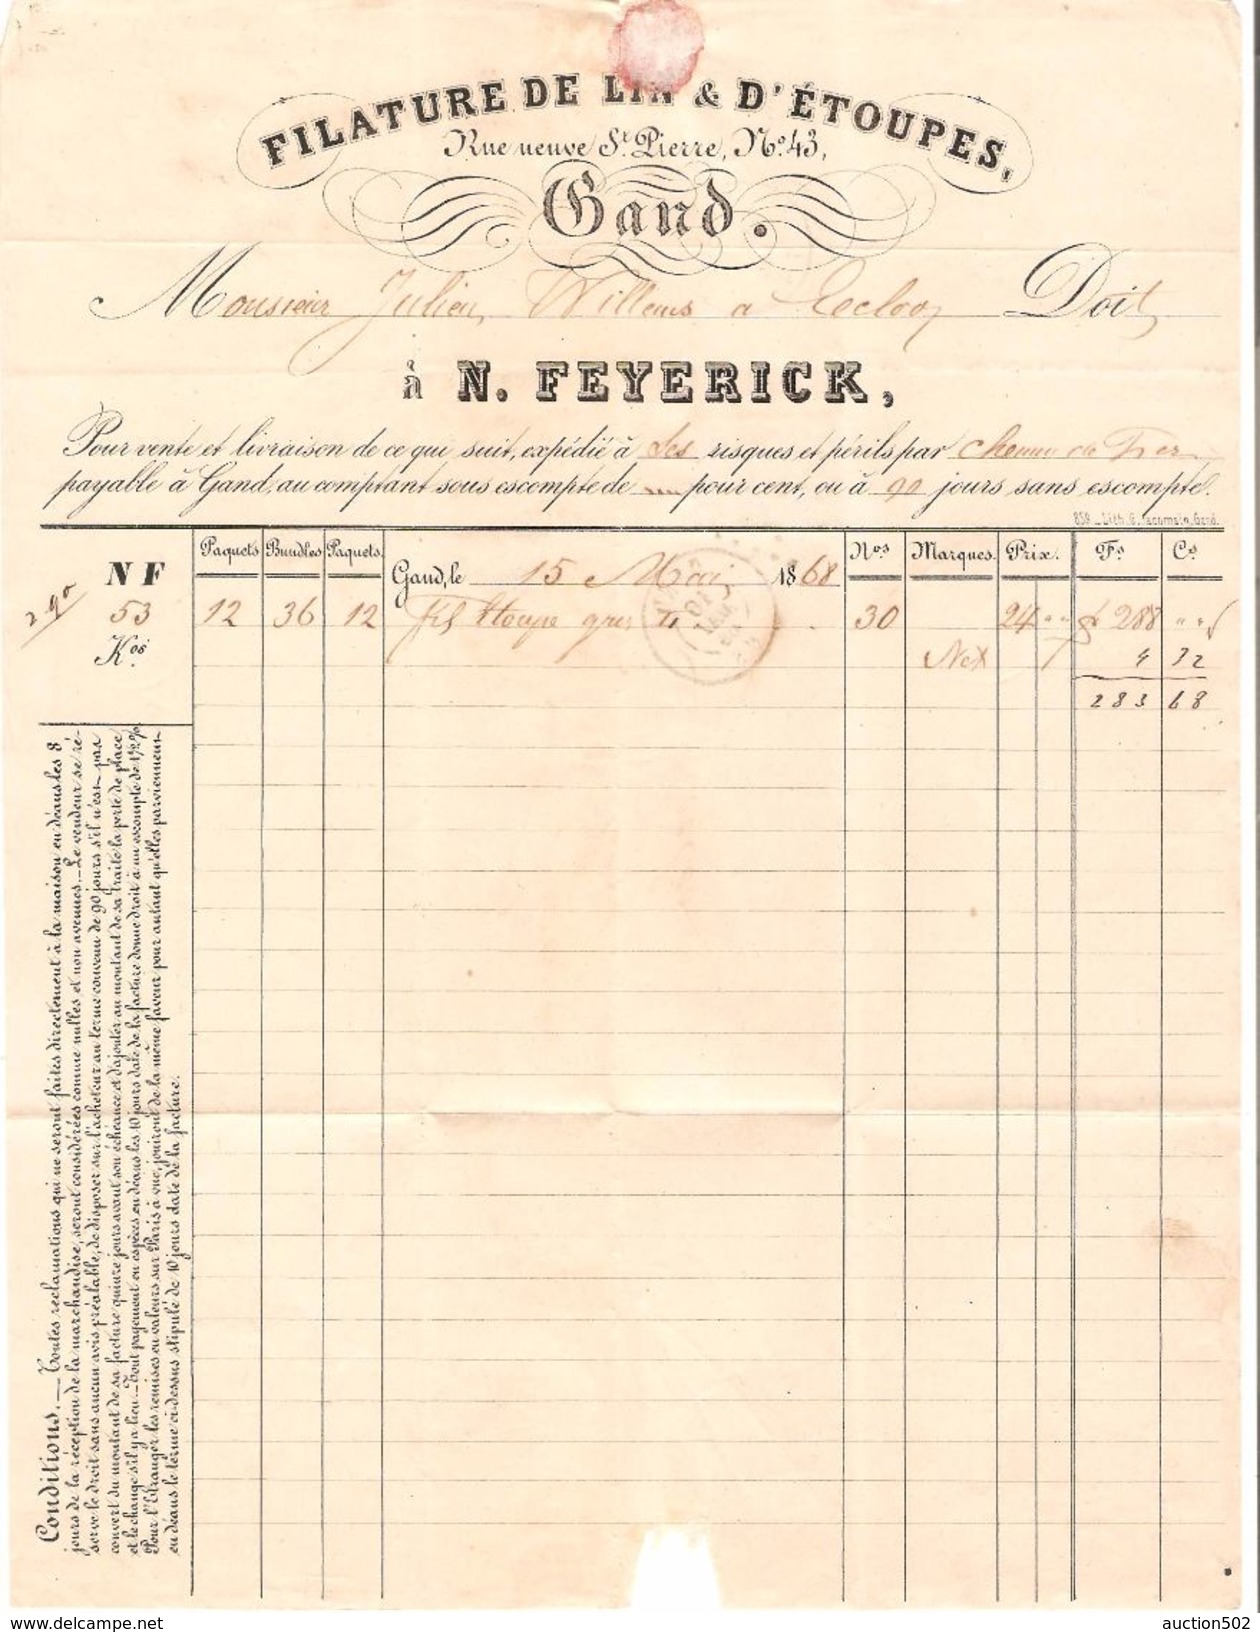 FILATURE DE LIN & D'ÉTOUPES,
Rue neuve St. Pierre, No. 43,
Gand.
Monsieur Julien Willems a Eecloo Doit
à N. FEYERICK,
Pour vente et livraison de ce qui suit, expédié à ses risques et périls par chemin de Fer
payable à Gand, au comptant sous escompte de pour cent, ou à 90 jours sans escompte.
859 _ Lith. G. Jacqmain, Gand.
Paquets Bundles Paquets Gand, le 15 Mai 1868 Nos Marques. Prix. Fs Cs
N F
53 12 36 12 Fil Etoupe gris 30 24 " " f 288 " "
Kos Net 4 32
283 68
Conditions. — Toutes réclamations qui ne seront faites directement à la maison en déans les 8
jours de la réception de la marchandise, seront considérées comme nulles et non avenues. — Le vendeur se ré-
serve le droit sans aucun avis préalable, de disposer sur l'acheteur au terme convenu de 90 jours s'il n'est pas
couvert du montant de sa facture quinze jours avant son échéance et d'ajouter au montant de sa traite la perte de place
et le change s'il y a lieu. — Tout payement en espèces en déans les 10 jours date de la facture donne droit à un escompte de 1½ %
Pour l'Etranger les remises en valeurs sur Paris à vue, jouiront de la même faveur pour autant qu'elles parviennent
en déans le terme ci-dessus stipulé de 10 jours date de la facture.
auction502